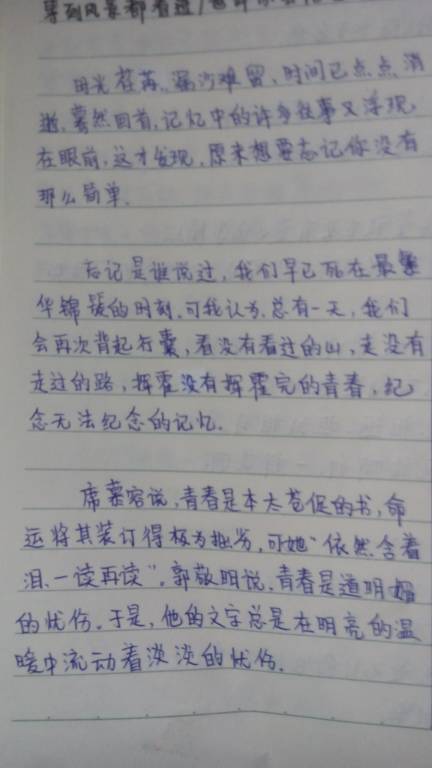 等到风景都看透
时光荏苒、漏沙难留,时间已点点消
逝,蓦然回首,记忆中的许多往事又浮现
在眼前,这才发现,原来想要忘记你没有
那么简单.
忘记是谁说过,我们早已死在最繁
华锦簇的时刻,可我认为,总有一天,我们
会再次背起行囊,看没有看过的山,走没有
走过的路,挥霍没有挥霍完的青春,纪
念无法纪念的记忆.
席慕容说,青春是本太苍促的书,命
运将其装订得极为拙劣,可她“依然含着
泪,一读再读”,郭敬明说,青春是道明媚
的忧伤.于是,他的文字总是在明亮的温
暖中流动着淡淡的忧伤.